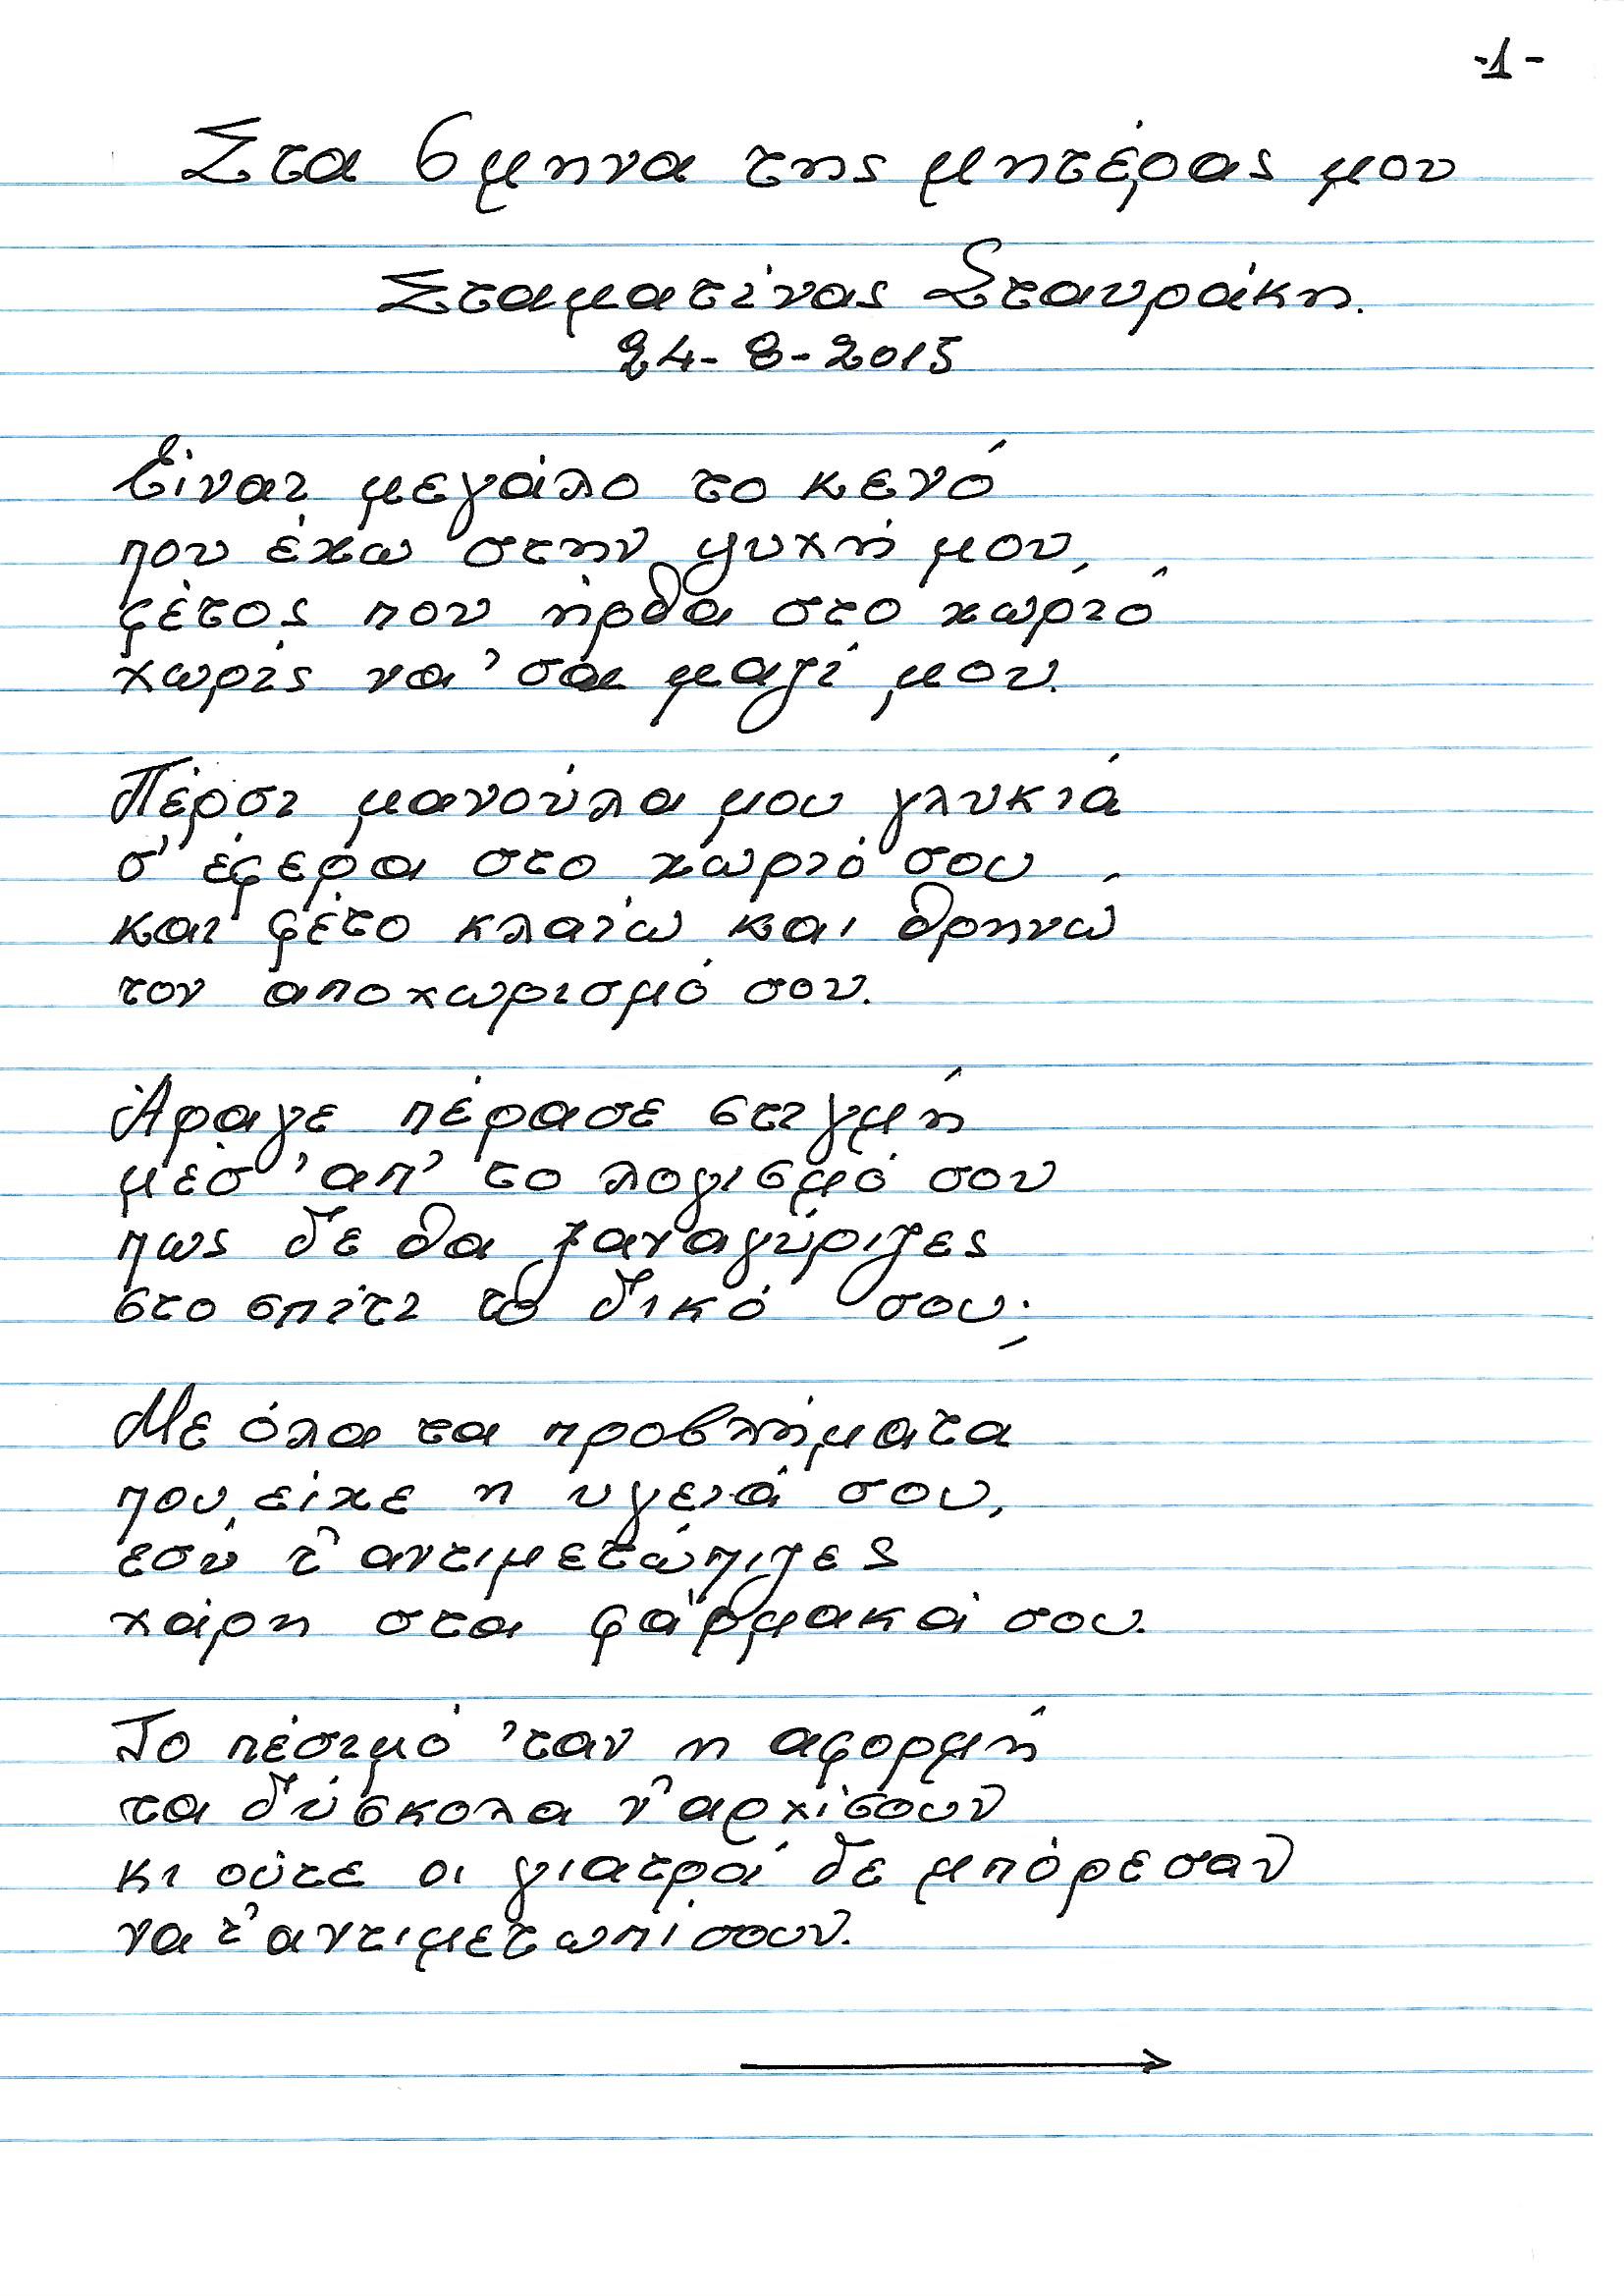 -1-
Στα 6μηνα της μητέρας μου
Σταματίνας Σταυράκη.
24-8-2015
Είναι μεγάλο το κενό
που έχω στην ψυχή μου,
φέτος που ήρθα στο χωριό
χωρίς να 'σαι μαζί μου.
Πέρσι μανούλα μου γλυκιά
σ' έφερα στο χωριό σου
και φέτο κλαίω και θρηνώ
τον αποχωρισμό σου.
Άραγε πέρασε στιγμή
μέσ' απ' το λογισμό σου
πως δε θα ξαναγύριζες
στο σπίτι το δικό σου;
Με όλα τα προβλήματα
που είχε η υγειά σου,
εσύ τ' αντιμετώπιζες
χάρη στα φάρμακά σου.
Το πέσιμό 'ταν η αφορμή
τα δύσκολα ν' αρχίσουν
κι ούτε οι γιατροί δε μπόρεσαν
να τ' αντιμετωπίσουν.